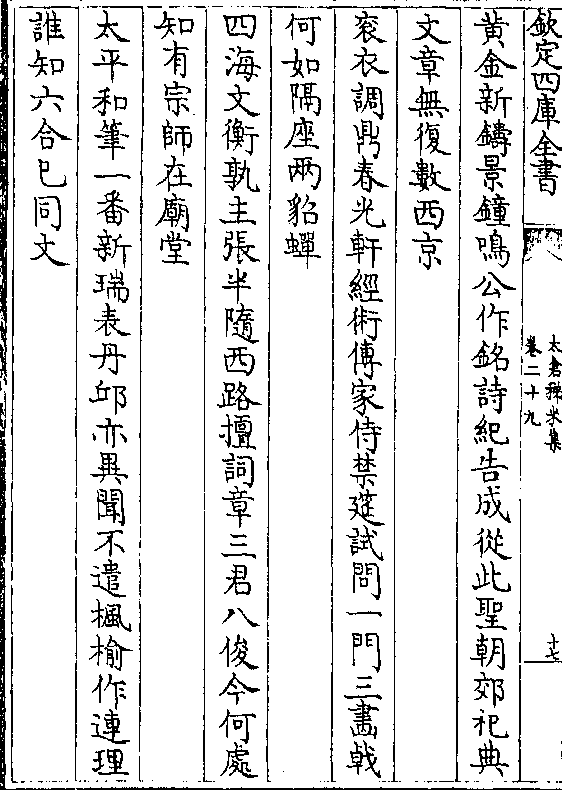 欽定四庫全書
太倉稊米集
卷二十九
十七
黄金新鑄景鐘鳴公作銘詩紀告成從此聖朝郊祀典
文章無復數西京
衮衣調鼎春光軒經術傳家侍禁筵試問一門三畫㦸
何如隔座兩貂蟬
四海文衡孰主張半隨西路擅詞章三君八俊今何處
知有宗師在廟堂
太平和筆一番新瑞表丹邱亦異聞不遣楓榆作連理
誰知六合已同文